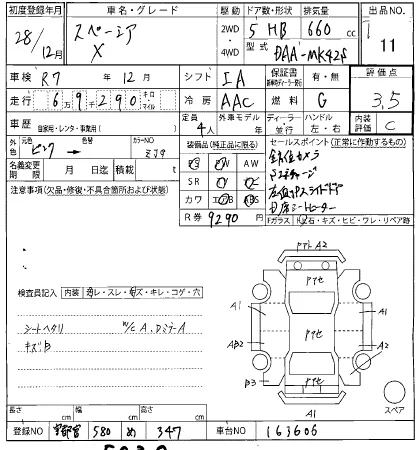 初度登録年月 車名・グレード 駆動 ドア数・形状 排気量 出品NO.
28/12月 スペーシア X 2WD 4WD 5 HB 660 cc 11
型式 DAA-MK42S
車検 R7年12月 シフト IA 保証書 有・無 評価点 3.5
走行 6万9千290 キロ・マイル 冷房 AAC 燃料 G 内装評価 C
車歴 自家用・レンタ・事業用( ) 定員 4人 外車モデル 年 ディーラー・並行 ハンドル 左・右
外色 元色 ピンク 色替 カラーNO ZJ9 装備品(純正品に限る) セールスポイント(正常に作動するもの)
名義変更期限 月 日迄 積載 t PS PW AW
SR
カワ エアB ABS
全方位カメラ
左側パワースライドドア
シートヒーター
注意事項(欠品・修復・不具合箇所および状態)
R券 9290円 Fガラス 石・キズ・ヒビ・ワレ・リペア跡
検査員記入 内装 汚レ・スレ・キズ・キレ・コゲ・穴
シートヘタリ W/C A、DミラーA
キズ、B
A2
A1 A1
AB2 A2
B3
A1
スペア
長さ cm 幅 cm 高さ cm
登録NO 宇都宮 580 め 347 車台NO 163606